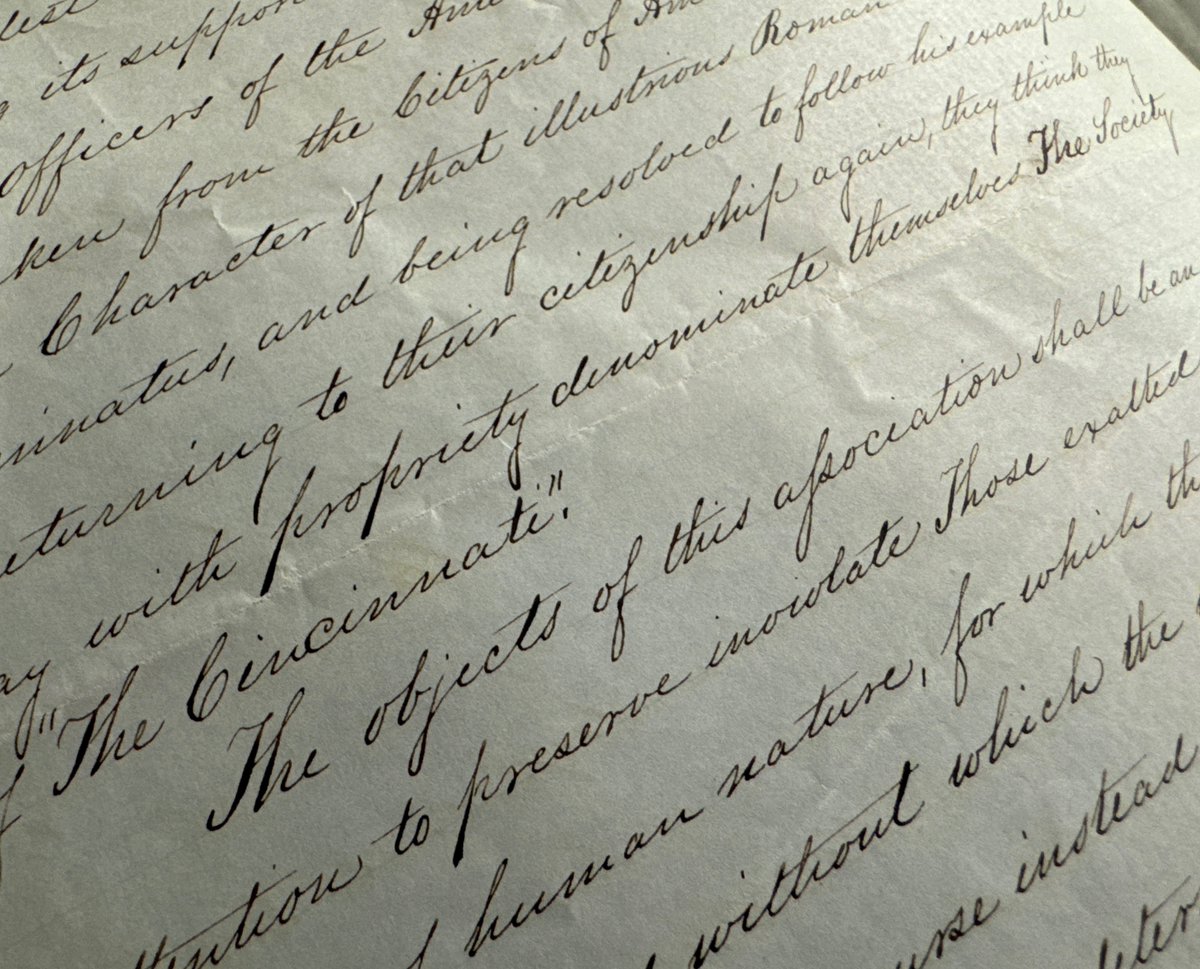 its support
officers of the Ame
ken from the Citizens of Am
Character of that illustrious Roman
innatus, and being resolved to follow his example
eturning to their citizenship again, they think they
ay with propriety denominate themselves The Society
f "The Cincinnati".
The objects of this association shall be an
ttention to preserve inviolate Those exalted
f human nature, for which th
without which the
urse instead